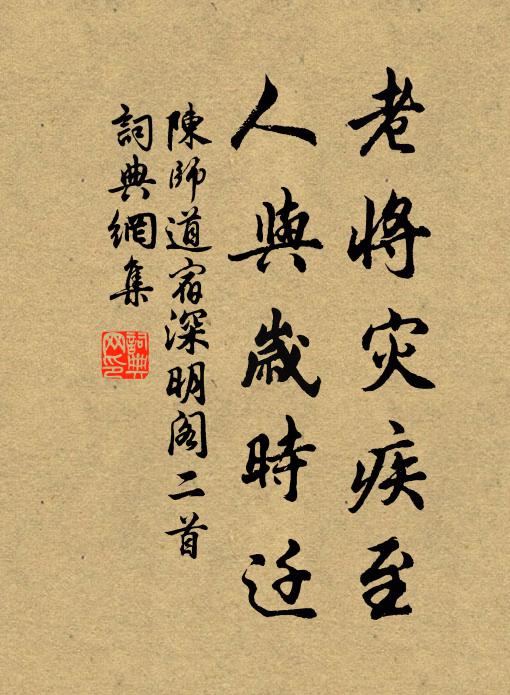 老將灾疾至
人與歲時迁
陳師道宿深明阁二首
詞典網集
詞典
网印